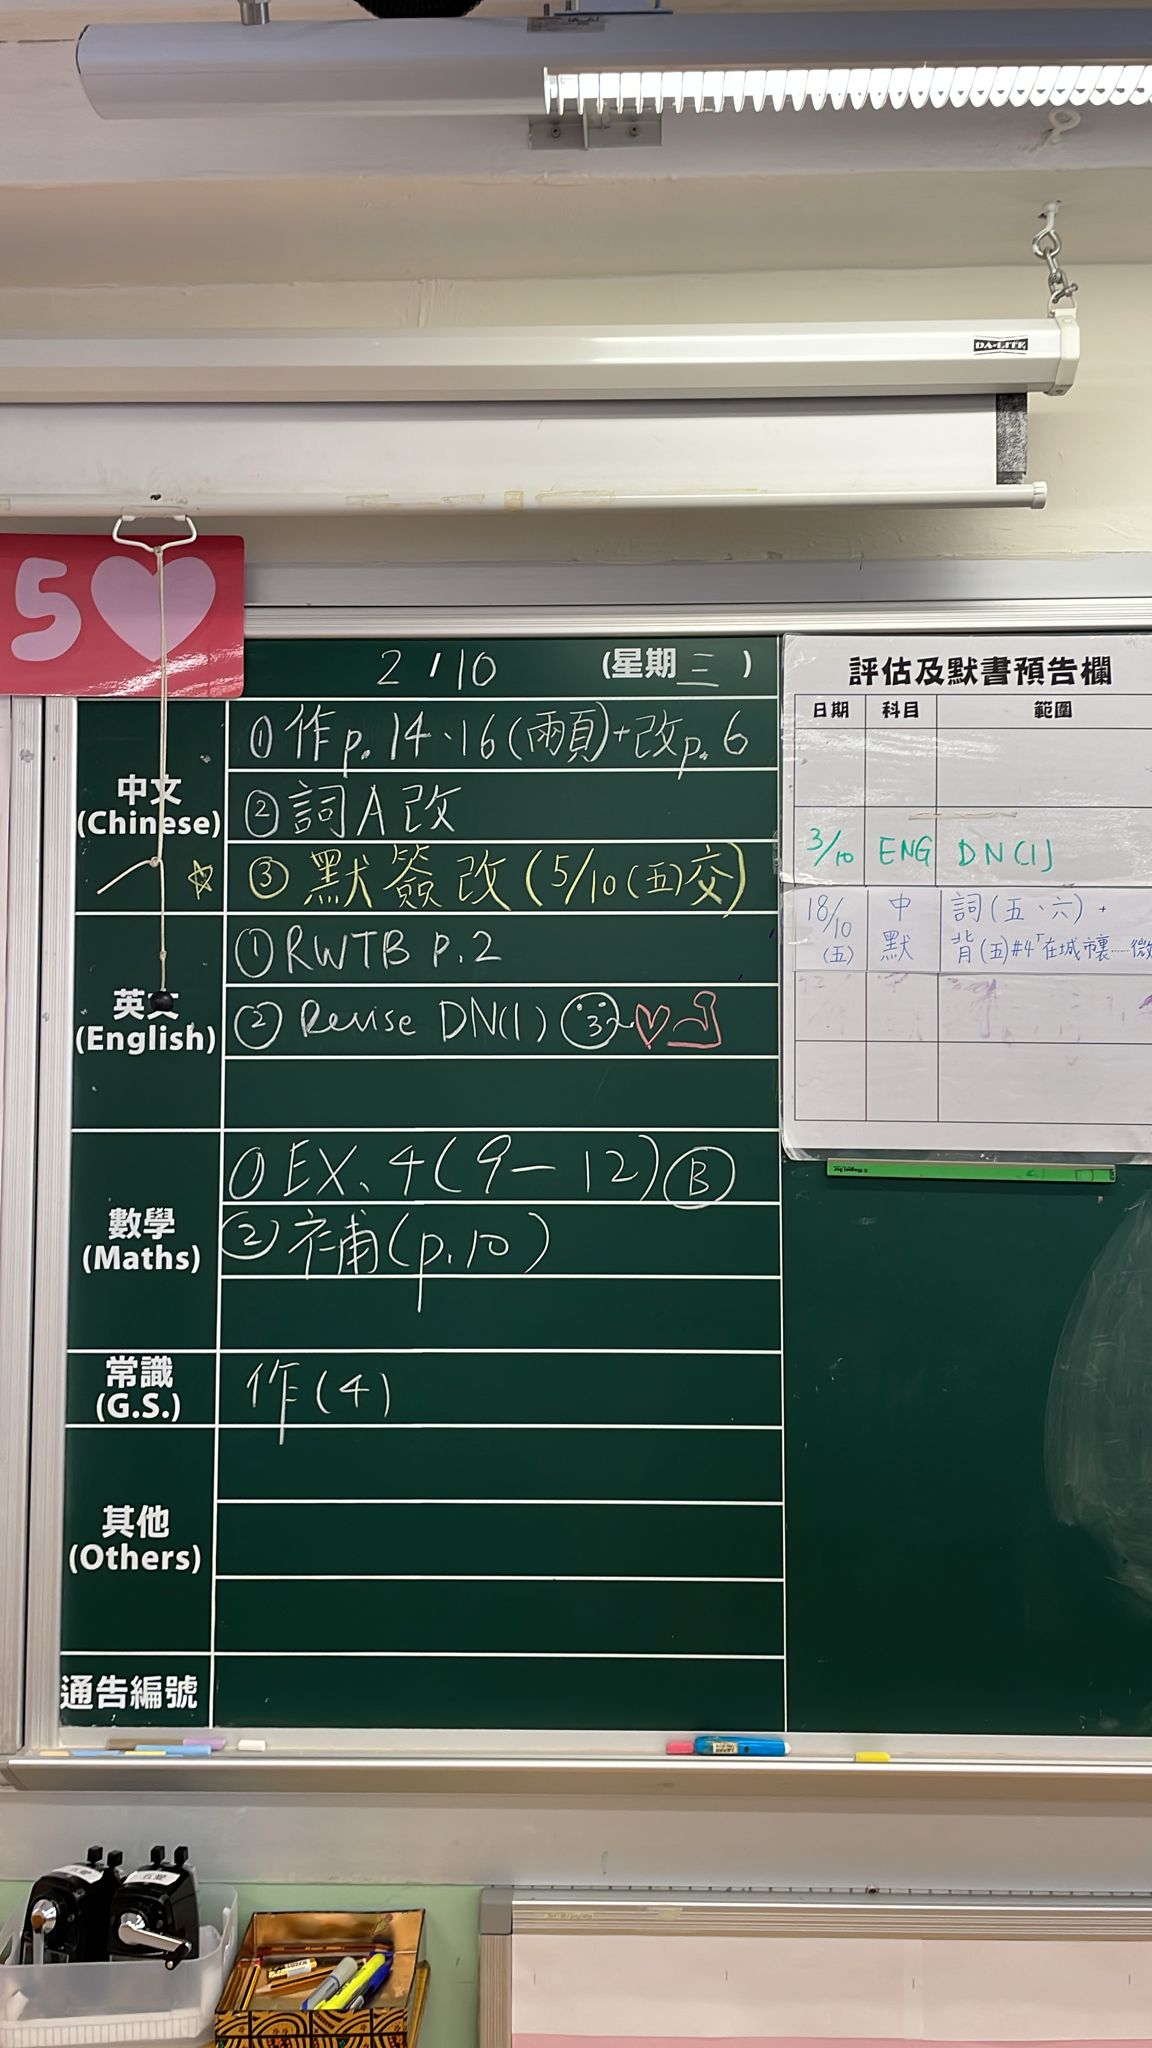 DA-LITE
5
2/10 (星期三)
中文
(Chinese)
① 作p.14、16(兩頁)+改p.6
② 詞A改
③ 默簽改(5/10(五)交)
英文
(English)
① RWTB P.2
② Revise DN(1)
數學
(Maths)
① EX.4(9—12) B
② 補(p.10)
常識
(G.S.)
作(4)
其他
(Others)
通告編號
評估及默書預告欄
日期 科目 範圍
3/10 ENG DN(1)
18/10 中 詞(五、六)+
(五) 默 背(五)#4「在城市裏……微